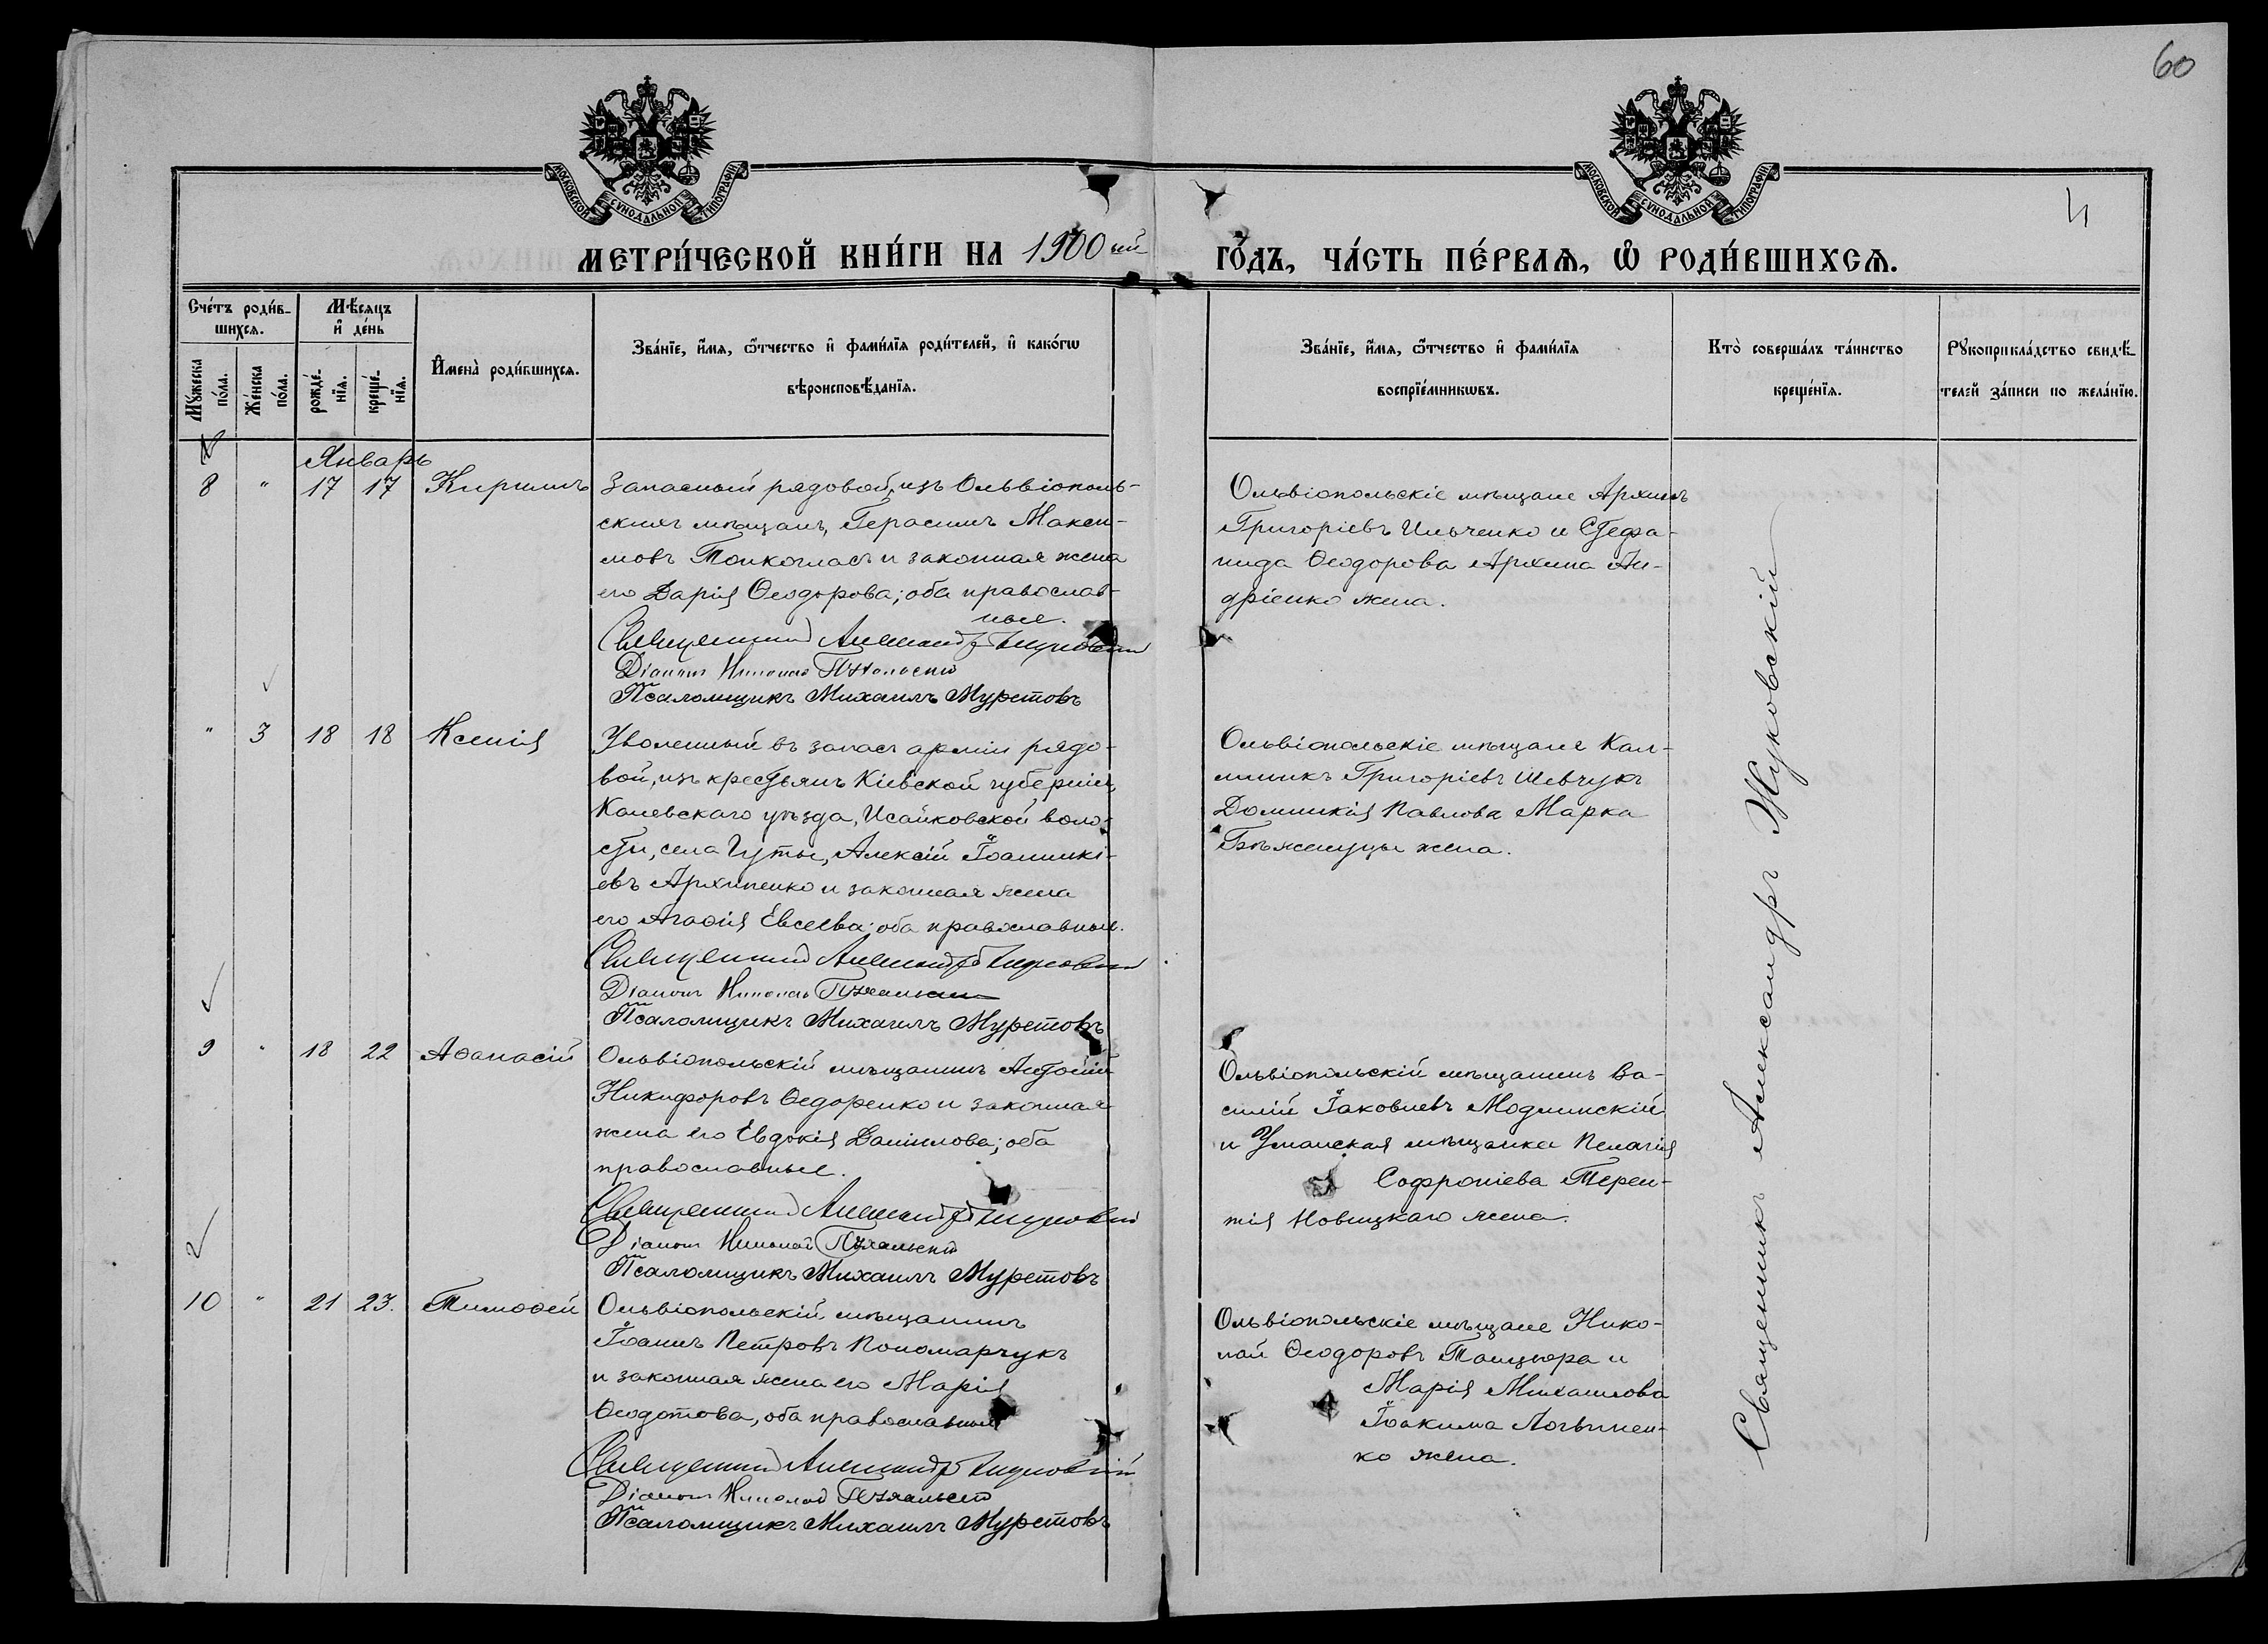 60
МОСКОВСКОЙ СУНОДАЛЬНОЙ ТИПОГРАФІИ
МОСКОВСКОЙ СУНОДАЛЬНОЙ ТИПОГРАФІИ
4
МЕТРИ́ЧЕСКОЙ КНИ́ГИ НА 1900 ый ГО́ДЪ, ЧА́СТЬ ПЕ́РВАѦ, Ѡ҆ РОДИ́ВШИХСѦ.
Сче́тъ роди́в-
шихсѧ.
Мꙋ́жеска по́ла.
Же́нска по́ла.
Мѣ́сѧцъ
и҆ де́нь
рожде́-
нїѧ.
креще́-
нїѧ.
И҆мена̀ роди́вшихсѧ.
Зва́нїе, и҆́мѧ, ѻ҆́тчество и҆ фами́лїѧ роди́телей, и҆ како́гѡ
вѣроисповѣ́данїѧ.
Зва́нїе, и҆́мѧ, ѻ҆́тчество и҆ фами́лїѧ
воспрїе́мникѡвъ.
Кто̀ соверша́лъ та́инство
креще́нїѧ.
Рꙋкоприкла́дство свидѣ́-
телей за́писи по жела́нїю.
Январь
8 " 17 17 Кириллъ
Запасный рядовой, изъ Ольвіополь-
скихъ мѣщанъ, Герасимъ Макси-
мовъ Тонкогласъ и законная жена
его Дарія Ѳеодорова; оба православ-
ные.
Священникъ Александръ Жуковскій
Діаконъ Николай
Псаломщикъ Михаилъ Муретовъ
Ольвіопольскіе мѣщане Архипъ
Григоріевъ Ильченко и Стефа-
нида Ѳеодорова Архипа Ан-
дріенко жена.
" 3 18 18 Ксенія
Уволенный въ запасъ арміи рядо-
вой, изъ крестьянъ Кіевской губерніи,
Каневскаго уѣзда, Исайковской воло-
сти, села Гуты, Алексій Іоанникі-
евъ Архипенко и законная жена
его Агафія Евсеева; оба православные.
Священникъ Александръ Жуковскій
Діаконъ Николай
Псаломщикъ Михаилъ Муретовъ
Ольвіопольскіе мѣщане Кал-
линикъ Григоріевъ Шевчукъ
Домникія Павлова Марка
жена.
9 " 18 22 Аѳанасій
Ольвіопольскій мѣщанинъ Антоній
Никифоровъ Ѳедоренко и законная
жена его Евдокія Даніилова; оба
православные.
Священникъ Александръ Жуковскій
Діаконъ Николай
Псаломщикъ Михаилъ Муретовъ
Ольвіопольскій мѣщанинъ Ва-
силій Іаковлевъ Модлинскій
и Уманская мѣщанка Пелагія
Софроніева Терен-
тія Новицкаго жена.
10 " 21 23. Тимоѳей
Ольвіопольскій мѣщанинъ
Іоаннъ Петровъ Пономарчукъ
и законная жена его Марія
Ѳеодотова, оба православные
Священникъ Александръ Жуковскій
Діаконъ Николай
Псаломщикъ Михаилъ Муретовъ
Ольвіопольскіе мѣщане Нико-
лай Ѳеодоровъ Танцюра и
Марія Михаилова
Іоакима Логвинен-
ко жена.
Священникъ Александръ Жуковскій